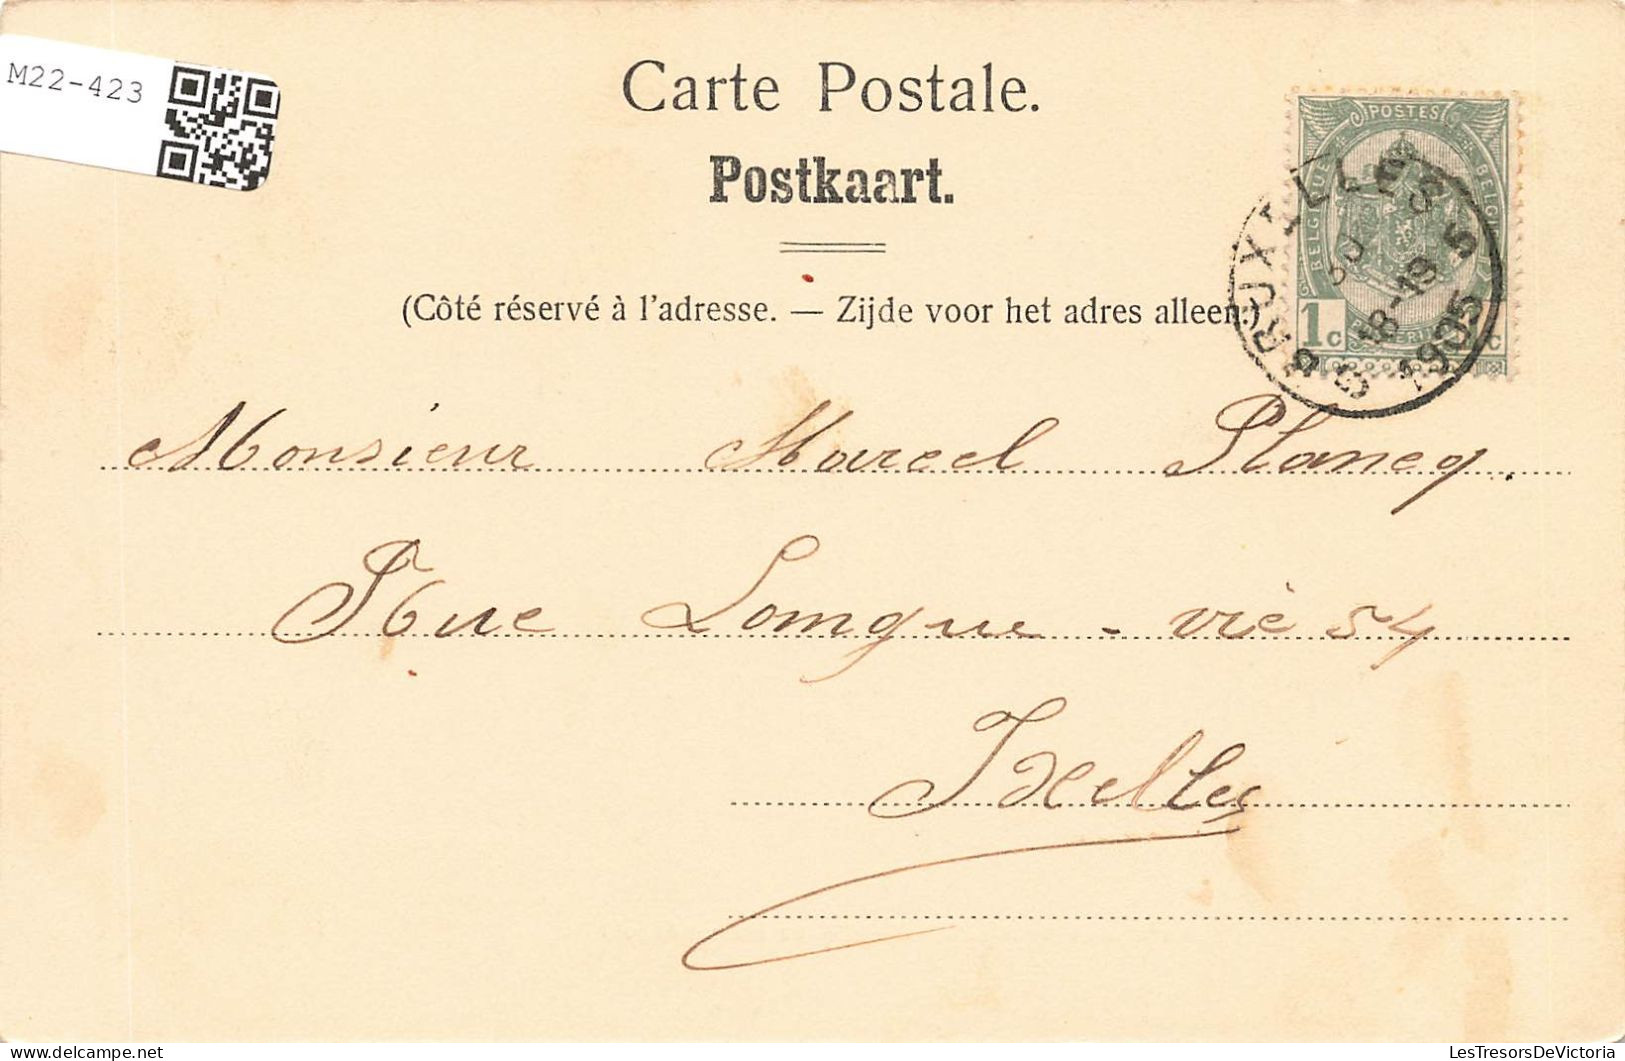 M22-423
Carte Postale.
Postkaart.
(Côté réservé à l'adresse. — Zijde voor het adres alleen
POSTES
BELGIQUE
BELGIË
1c
BRUXELLES 5
18-19
1905
Monsieur Marcel Plancq.
Rue Longue - vie 54
Ixelles
LesTresorsDeVictoria